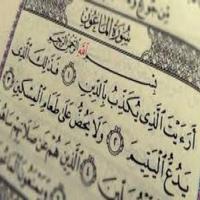 مِّن جُوعٍ وَ
سُورَةُ المَاعُونِ
بِسْمِ اللَّهِ الرَّحْمَٰنِ الرَّحِيمِ
أَرَءَيْتَ الَّذِي يُكَذِّبُ بِالدِّينِ ١ فَذَٰلِكَ الَّذِي
يَدُعُّ الْيَتِيمَ ٢ وَلَا يَحُضُّ عَلَىٰ طَعَامِ الْمِسْكِينِ ٣
الَّذِينَ هُمْ عَن صَلَاتِهِمْ سَاهُونَ